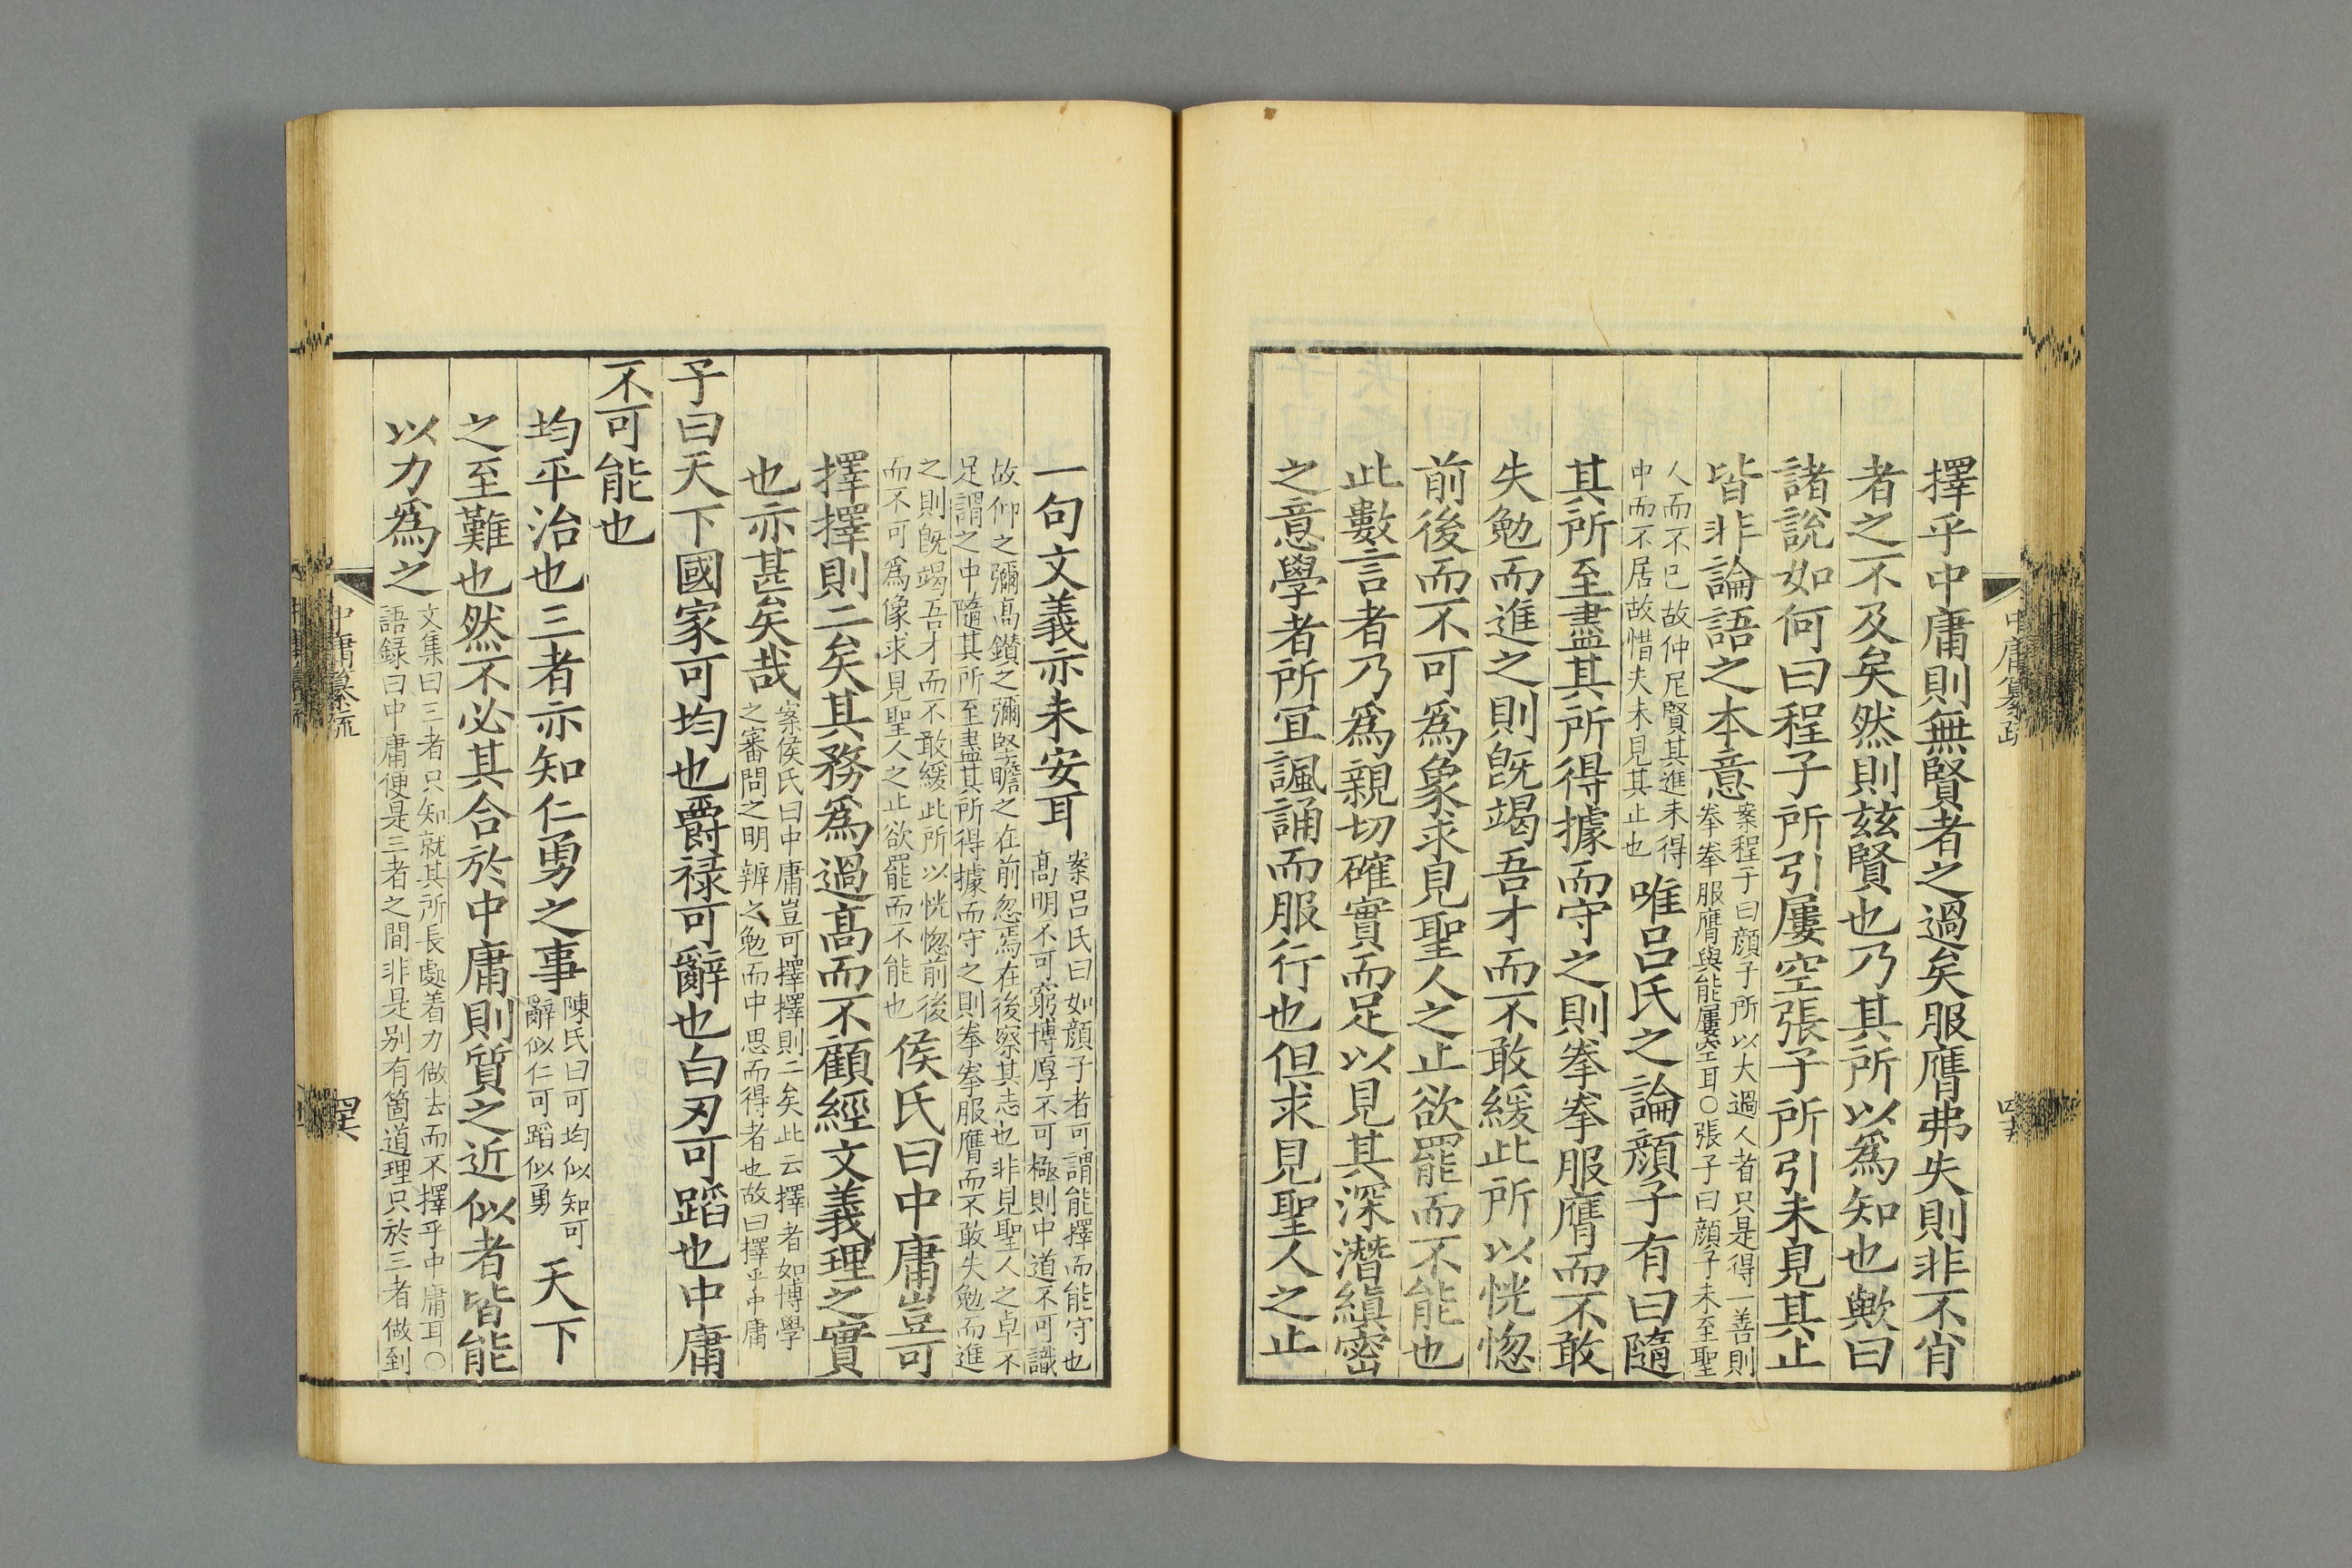 擇乎中庸則無賢者之過矣服膺弗失則非不肖
者之不及矣然則玆賢也乃其所以爲知也歟曰
諸說如何曰程子所引屢空張子所引未見其止
皆非論語之本意案程子曰顔子所以大過人者只是得一善則
拳拳服膺與能屢空耳○張子曰顔子未至聖
人而不已故仲尼賢其進未得
中而不居故惜夫未見其止也唯呂氏之論顔子有曰隨
其所至盡其所得據而守之則拳拳服膺而不敢
失勉而進之則旣竭吾才而不敢緩此所以恍惚
前後而不可爲象求見聖人之止欲罷而不能也
此數言者乃爲親切確實而足以見其深潛縝密
之意學者所冝諷誦而服行也但求見聖人之止
中庸纂疏
一句文義亦未安耳案呂氏曰如顔子者可謂能擇而能守也
高明不可窮博厚不可極則中道不可識
故仰之彌高鑽之彌堅瞻之在前忽焉在後察其志也非見聖人之卓不
足謂之中隨其所至盡其所得據而守之則拳拳服膺而不敢失勉而進
之則旣竭吾才而不敢緩此所以恍惚前後
而不可爲像求見聖人之止欲罷而不能也侯氏曰中庸豈可
擇擇則二矣其務爲過高而不顧經文義理之實
也亦甚矣哉案侯氏曰中庸豈可擇擇則二矣此云擇者如博學
之審問之明辨之勉而中思而得者也故曰擇乎中庸
子曰天下國家可均也爵祿可辭也白刃可蹈也中庸
不可能也
均平治也三者亦知仁勇之事陳氏曰可均似知可
辭似仁可蹈似勇天下
之至難也然不必其合於中庸則質之近似者皆能
以力爲之文集曰三者只知就其所長處着力做去而不擇乎中庸耳○
語録曰中庸便是三者之間非是别有箇道理只於三者做到
中庸纂疏